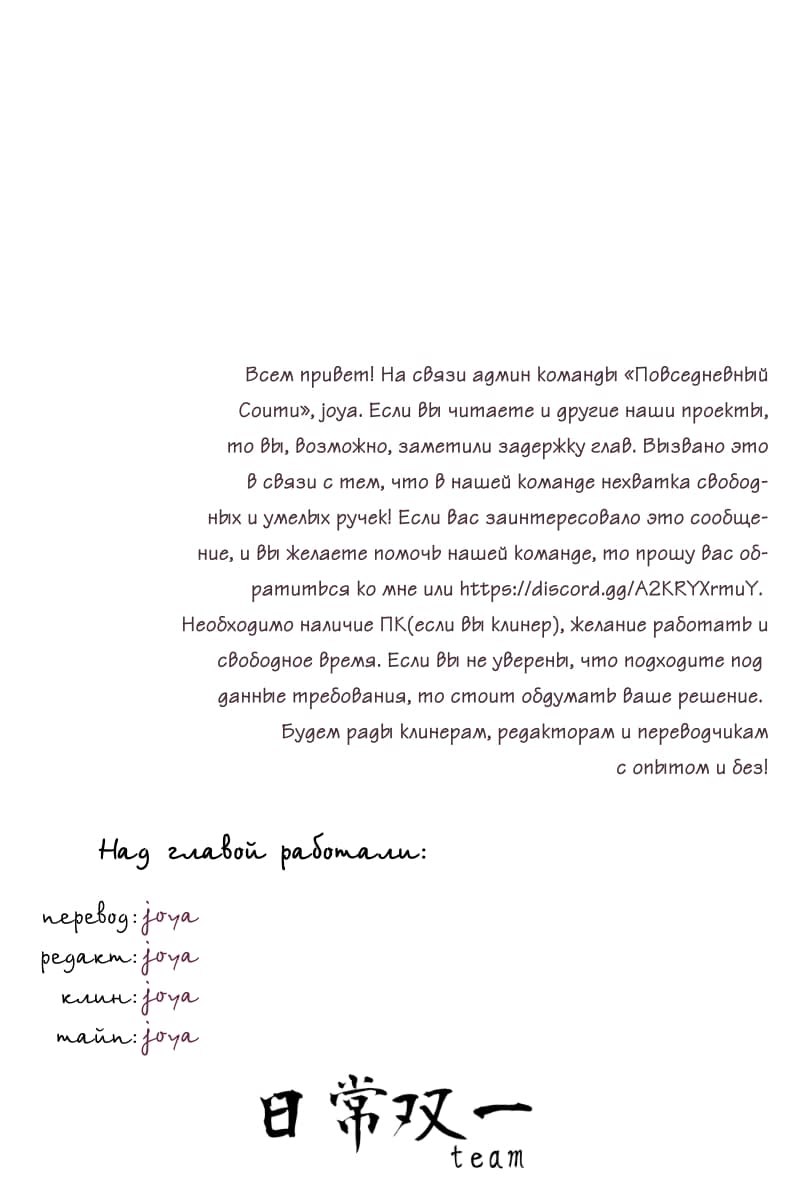 Всем привет! На связи админ команды «Повседневный
Соити», joya. Если вы читаете и другие наши проекты,
то вы, возможно, заметили задержку глав. Вызвано это
в связи с тем, что в нашей команде нехватка свобод-
ных и умелых ручек! Если вас заинтересовало это сообще-
ние, и вы желаете помочь нашей команде, то прошу вас об-
ратиться ко мне или https://discord.gg/A2KRYXrmuY.
Необходимо наличие ПК(если вы клинер), желание работать и
свободное время. Если вы не уверены, что подходите под
данные требования, то стоит обдумать ваше решение.
Будем рады клинерам, редакторам и переводчикам
с опытом и без!
Над главой работали:
перевод: joya
редакт: joya
клин: joya
тайп: joya
日常双一
team